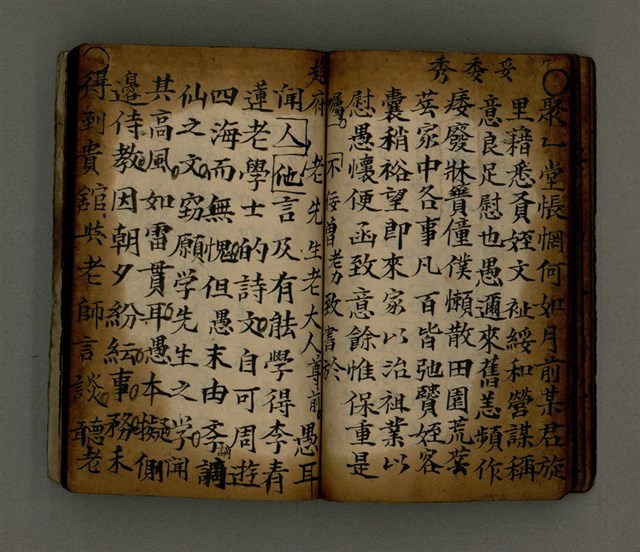 妥委秀
聚乙堂悵惘何如月前某君旋
里籍悉賁姪文祉綏和營謀稱
意良足慰也愚邇來舊恙頻作
痿廢牀簀僮僕懶散田園荒蕪
蕪家中各事凡百皆弛贒姪客
囊稍裕望即來家以治祖業以
慰愚懷便函致意餘惟保重是
囑 不佞曾老力致書於
趙府 老先生老大人尊前愚耳
聞人他言及有能學得李青
蓮老學士的詩文自可周遊
四海而無愧但愚末由
仙之文窃願學先生之學聞
其高風如雷貫耳愚本擬側
邊侍教因朝夕紛紜事務未
得到貴舘共老師言談敢聽老